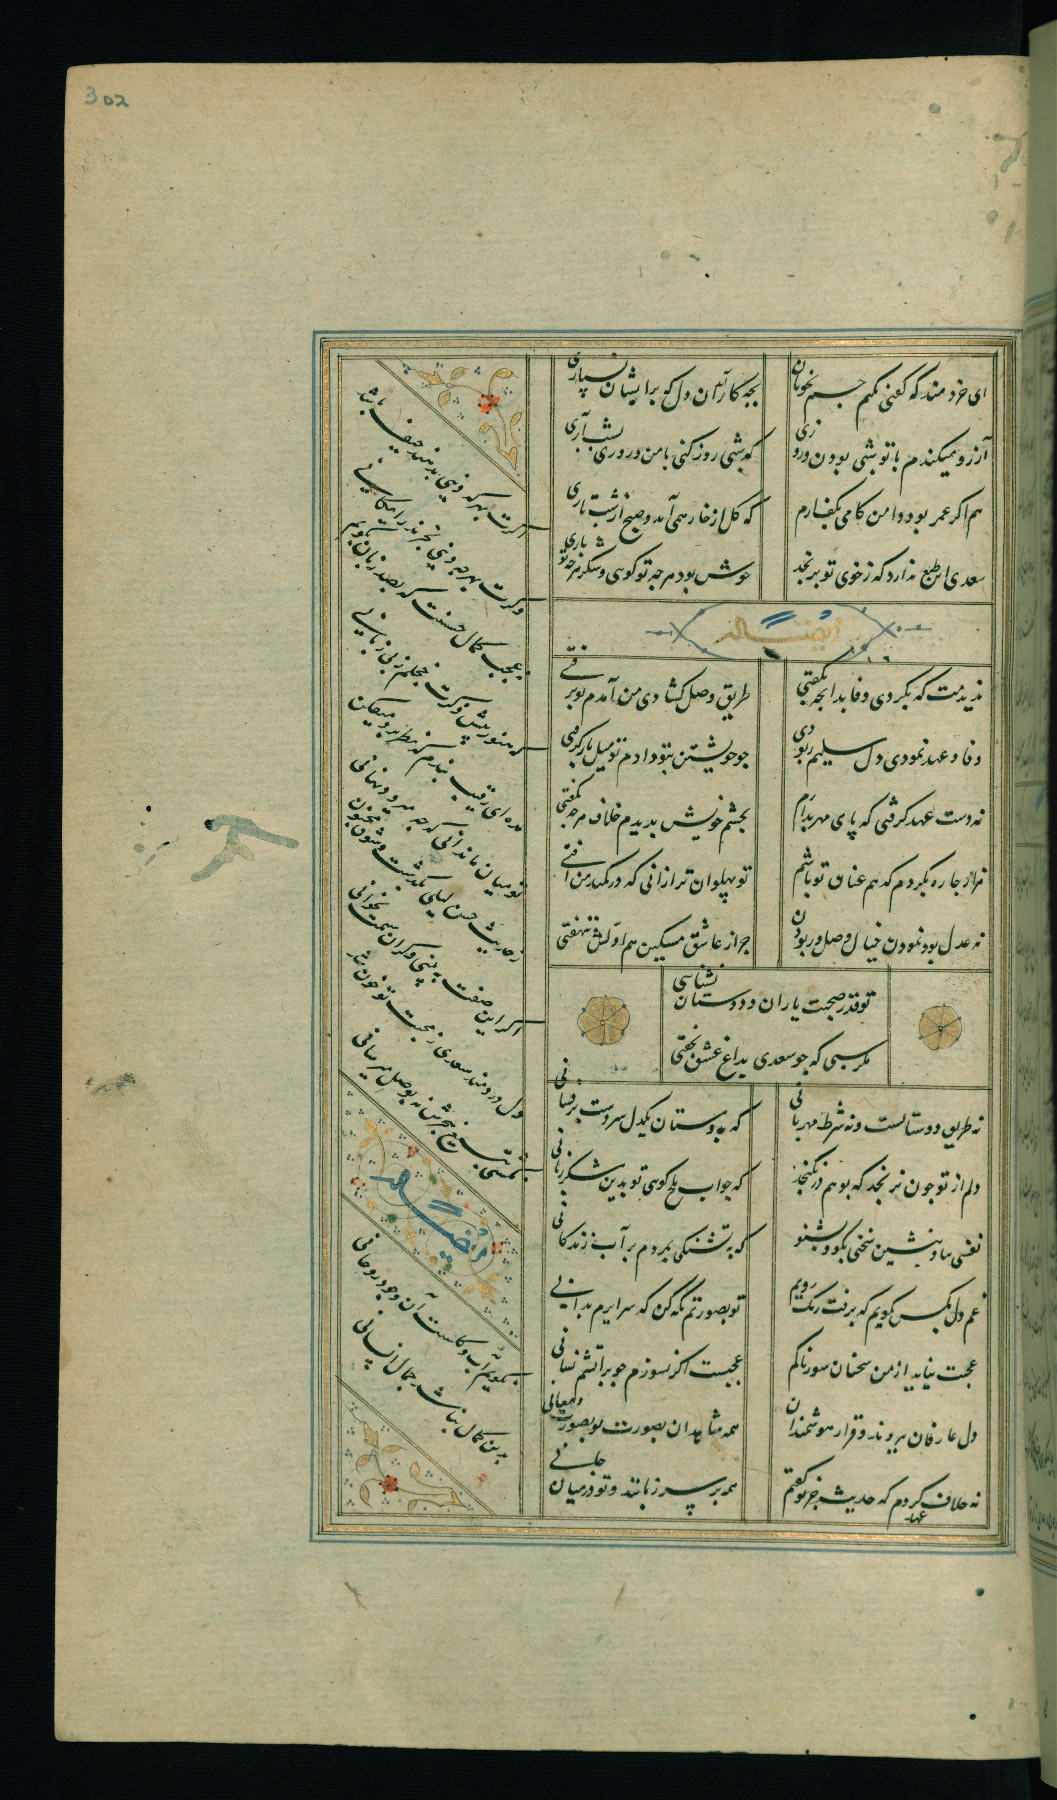 ای خردمند که گفتی نکنم چشم بخوبان
بچه کار آیدت آن دل که برایشان نسپاری
آرزو میکندم با تو شبی بودن و روزی
که شبی روز کنی با من و روزی بشب آری
هم اگر عمر بود دامن کامی بکف آرم
که گل از خار همی آید و صبح از شب تاری
سعدی ان طبع ندارد که ز خوی تو برنجد
خوش بود هر چه تو گویی و شکر هر چه تو باری
ایضاً له
ندیدمت که بکردی وفا بدانچه بگفتی
طریق وصل گشادی من آمدم تو برفتی
وفا و عهد نمودی دل سلیم ربودی
چو خویشتن بتو دادم تو میل بازگرفتی
نه دست عهد گرفتی که پای مهر بدارم
بچشم خویش بدیدم خلاف هر چه بگفتی
هزار چاره بکردم که هم عنان تو باشم
تو پهلوان تر از انی که در کمند من افتی
نه عدل بود نمودن خیال وصل و ربودن
چرا ز عاشق مسکین هم اولش ننهفتی
تو قدر صحبت یاران و دوستان نشناسی
مگر شبی که چو سعدی بداغ عشق بخفتی
نه طریق دوستانست و نه شرط مهربانی
که به دوستان یکدل سر و دست برفشانی
دلم از تو چون نرنجد که بوهم در نگنجد
که جواب تلخ گویی تو بدین شکر زبانی
نفسی بیا و بنشین سخنی بگو و بشنو
که به تشنگی بمردم بر آب زندگانی
غم دل بکس نگویم که برفت رنگ رویم
تو بصورتم نگه کن که سرایرم بدانی
عجبت نیاید از من سخنان سوزناکم
عجبست اگر نسوزم چو بر آتشم نشانی
دل عارفان ببردند و قرار هوشمندان
همه شاهدان بصورت تو بصورت و معانی
نه خلاف عهد کردم که حدیث جز تو گفتم
همه بر سر زبانند و تو در میان جانی
اگرت بهر که دنیی بدهند حیف باشد
وگرت بهر چه بخرند رایگانی
عجب کمال حسنت که بصد زبان بگویم
که هنوز پیش ذکرت خجلم ز بی زبانی
مده ای رقیب پندم که نظر
تو میان ما ندانی که چه میرود نهانی
ز حدیث حسن لیلی بگذشت و شوق مجنون
اگر این صفت ببینی دگران سمت بخوانی
دل دردمند سعدی ز محبت تو خون شد
نه بوصل میرسانی
ایضاً له
آب و گلست آن وجود روحانی
بدین کمال نباشد جمال انسانی
302